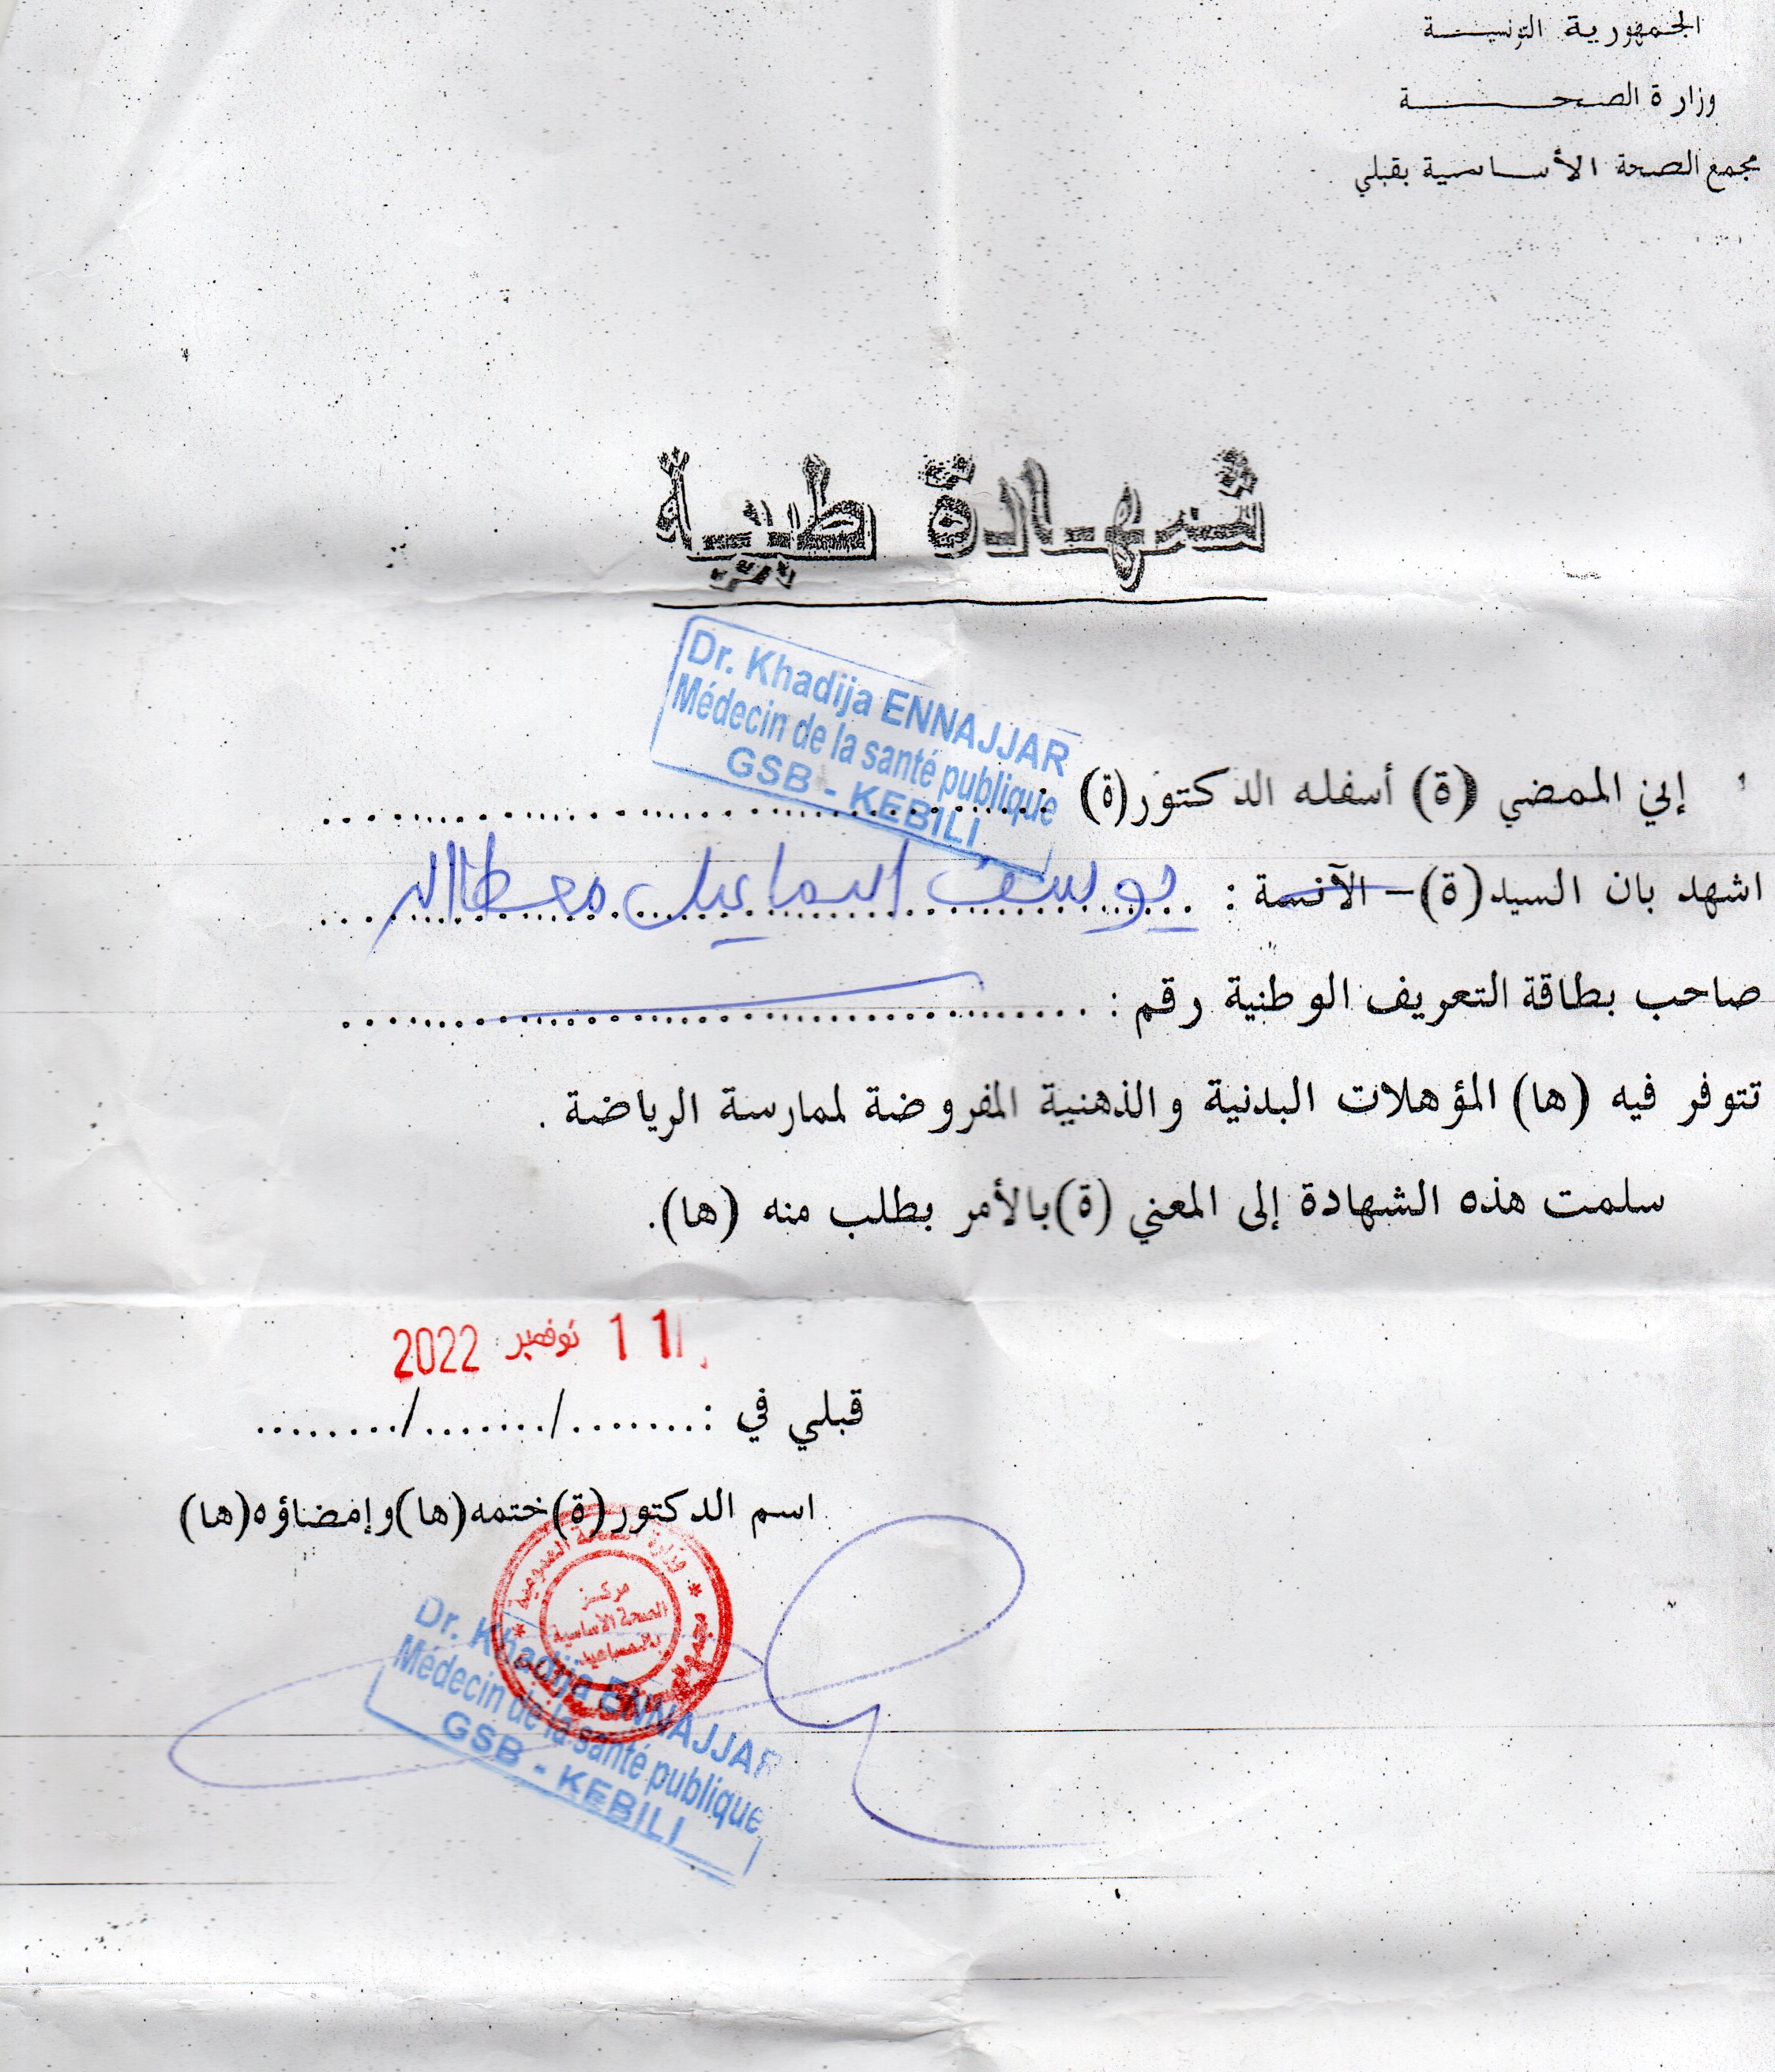 الجمهورية التونسية
وزارة الصحة
مجمع الصحة الأساسية بقبلي
شهادة طبية
Dr. Khadija ENNAJJAR
Médecin de la santé publique
GSB - KEBILI
إني الممضي (ة) أسفله الدكتور(ة) :
اشهد بان السيد(ة)– الآنسة : يوسف اسماعيل معطاالله
صاحب بطاقة التعريف الوطنية رقم :
تتوفر فيه (ها) المؤهلات البدنية والذهنية المفروضة لممارسة الرياضة .
سلمت هذه الشهادة إلى المعني (ة)بالأمر بطلب منه (ها).
11 نوفمبر 2022
قبلي في :......../......../........
اسم الدكتور(ة)ختمه(ها)وإمضاؤه(ها)
وزارة الصحة العمومية
مركز
الصحة الأساسية
Dr. Khadija ENNAJJAR
Médecin de la santé publique
GSB - KEBILI